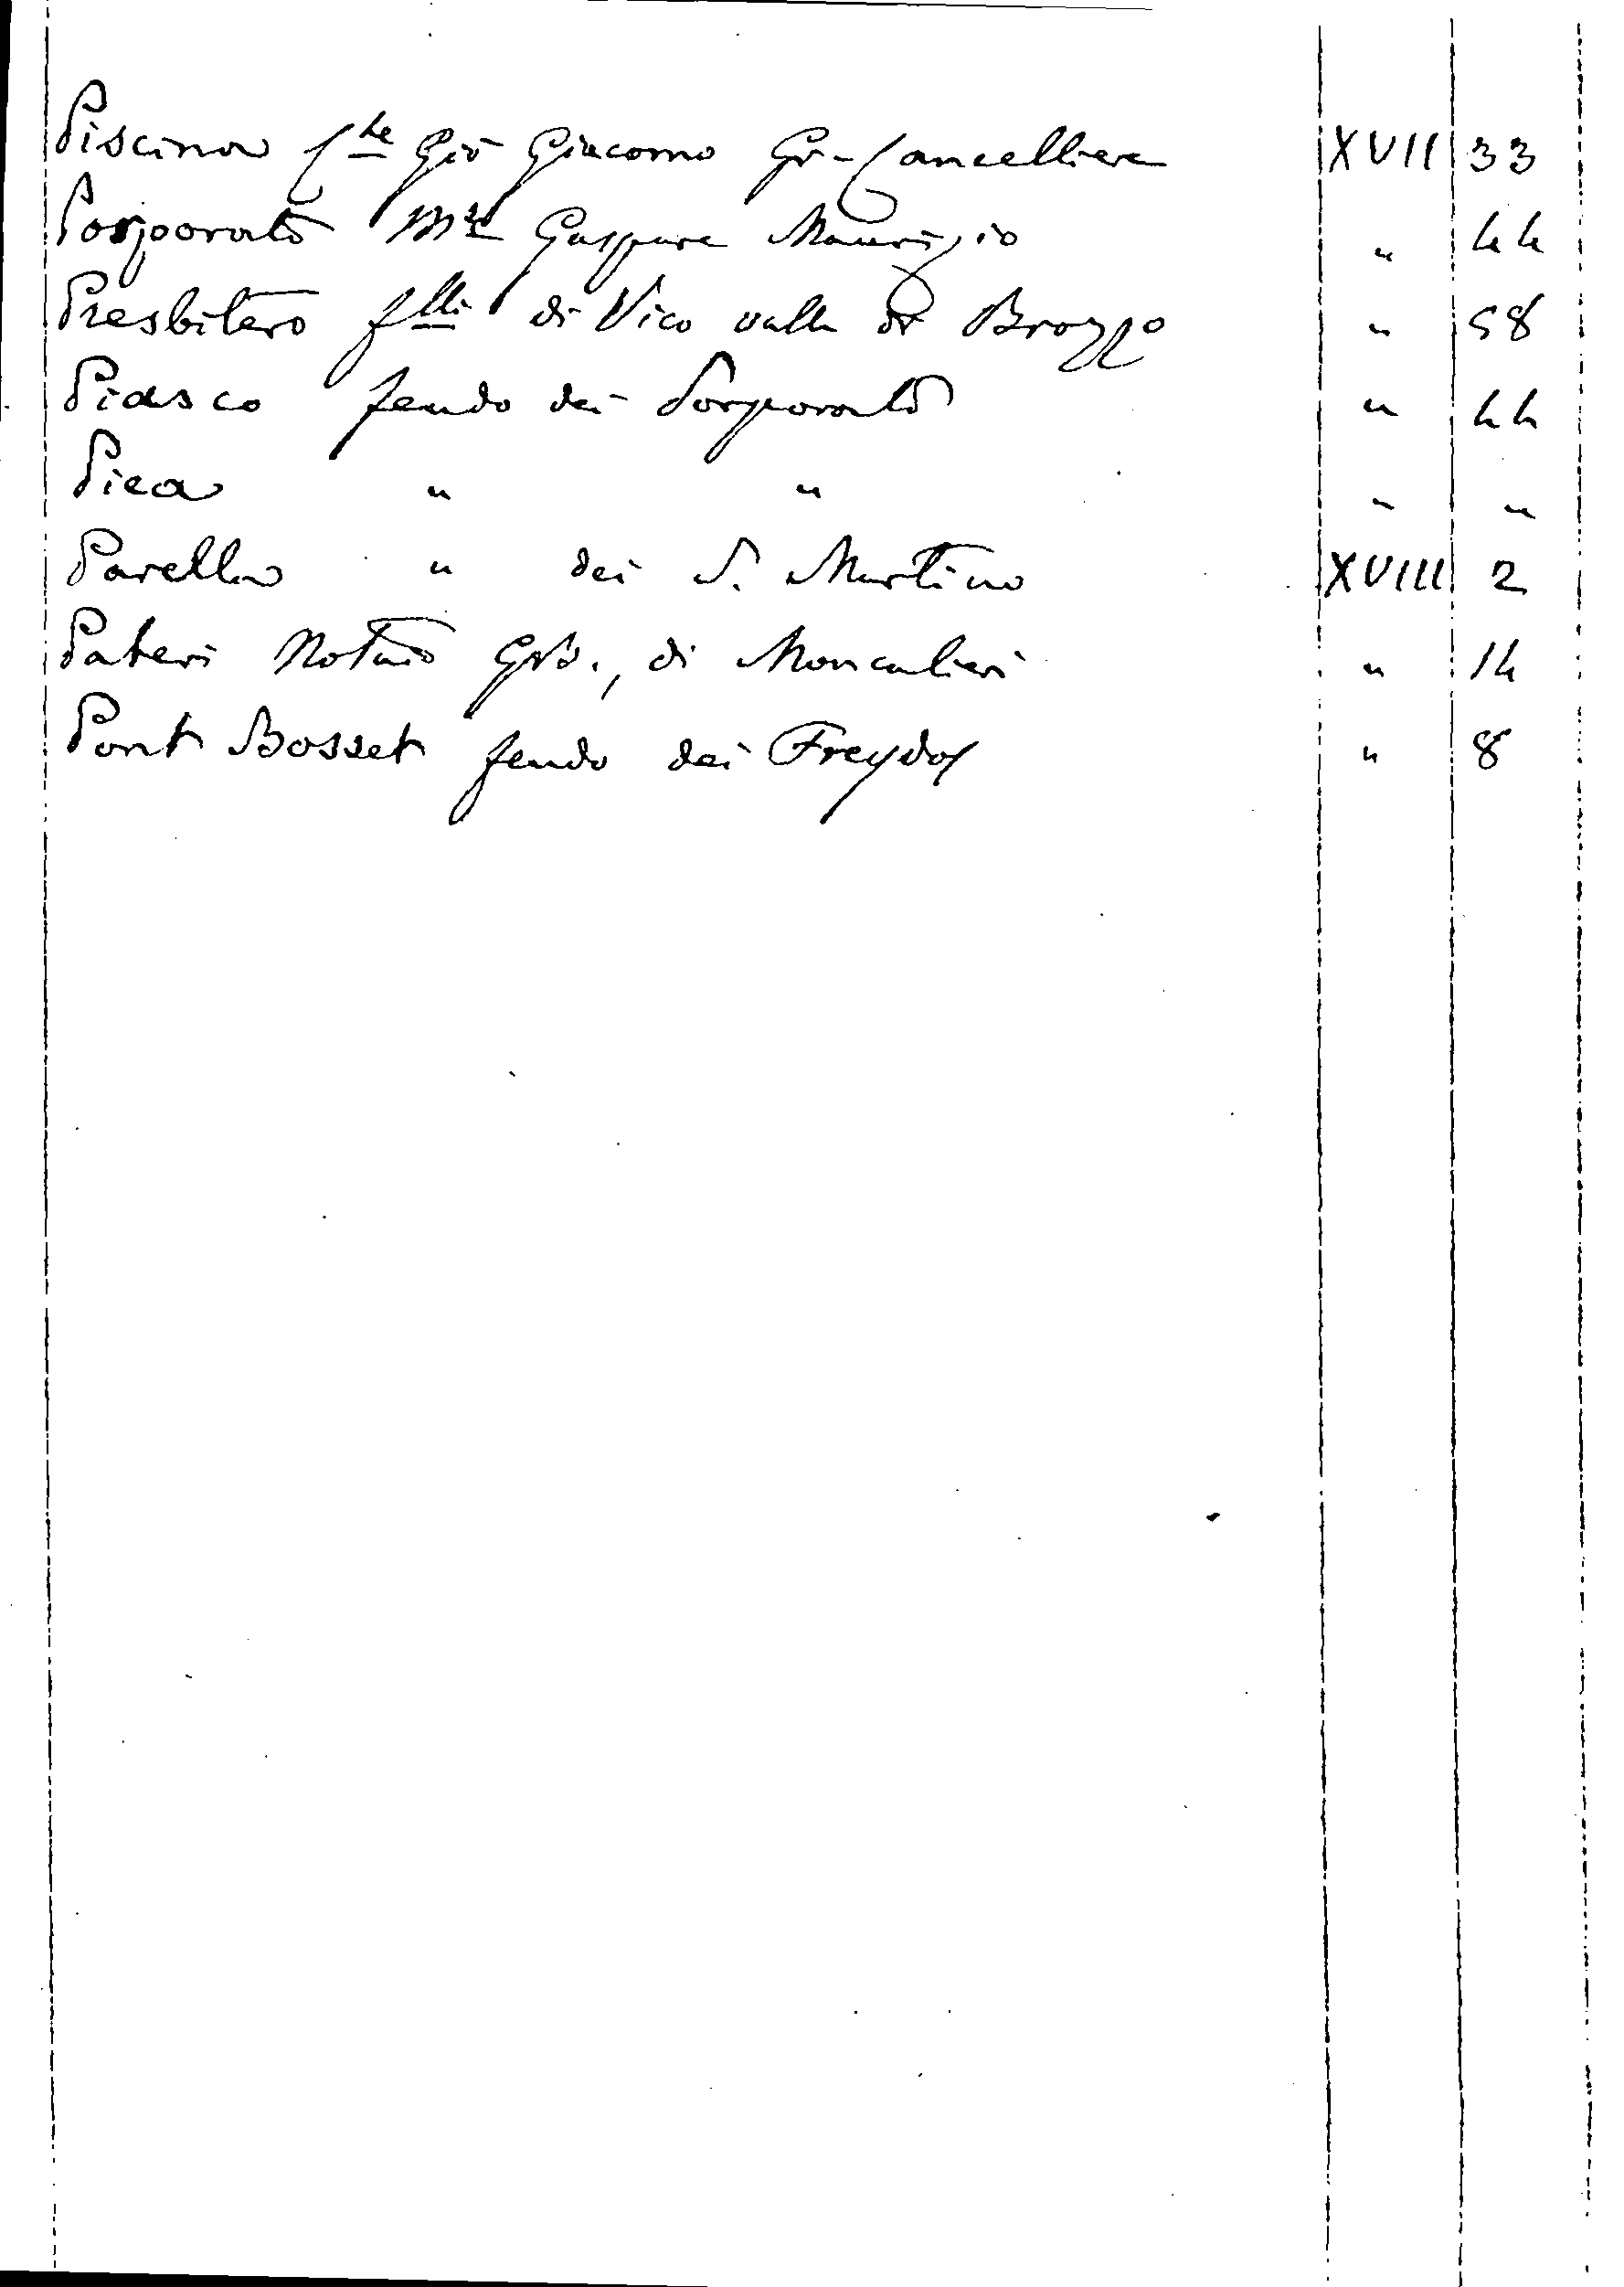 Piscina Cte Gio Giacomo Gr. Cancelliere XVII 33
Porporato Mse Gaspare Maurizio " 44
Presbitero flli di Vico valle di Brozzo " 58
Piasco feudo dei Porporato " 44
Piea " " " "
Parella " dei S. Martino XVIII 2
Pateri Notaio di Moncalieri " 14
Pont Bosset feudo dei Freydoz " 8